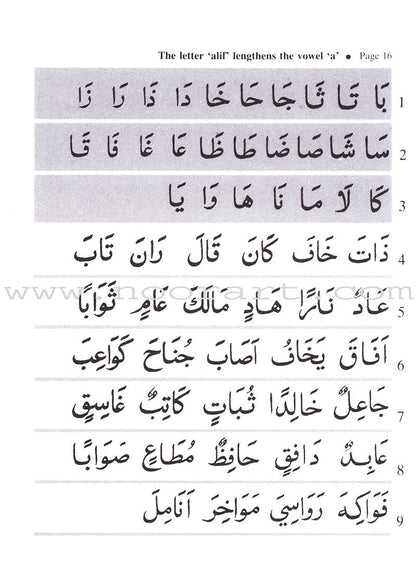 The letter ‘alif’ lengthens the vowel ‘a’ ● Page 16
بَا تَا ثَا جَا حَا خَا دَا ذَا رَا زَا 1
سَا شَا صَا ضَا طَا ظَا عَا غَا فَا قَا 2
كَا لَا مَا نَا هَا وَا يَا 3
ذَاتَ خَافَ كَانَ قَالَ رَانَ تَابَ 4
عَادٌ نَارًا هَادٍ مَالَكَ عَامٍ ثَوَابًا 5
اَفَاقَ يَخَافُ اَصَابَ جُنَاحَ كَوَاعِبَ 6
جَاعِلٌ خَالِدًا ثُبَاتٍ كَاتِبٌ غَاسِقٍ 7
عَابِدٌ دَافِقٍ حَافِظٌ مُطَاعٍ صَوَابًا 8
فَوَاكِهَ رَوَاسِيَ مَوَاخِرَ اَنَامِلَ 9